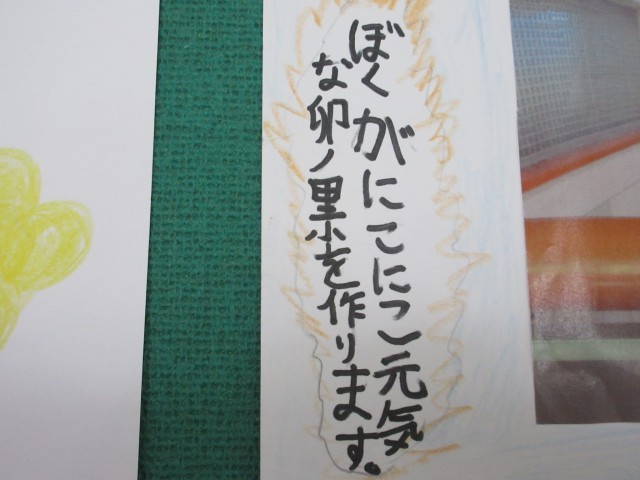 ぼくがにこにこ元気
な卵ノ里小を作ります。